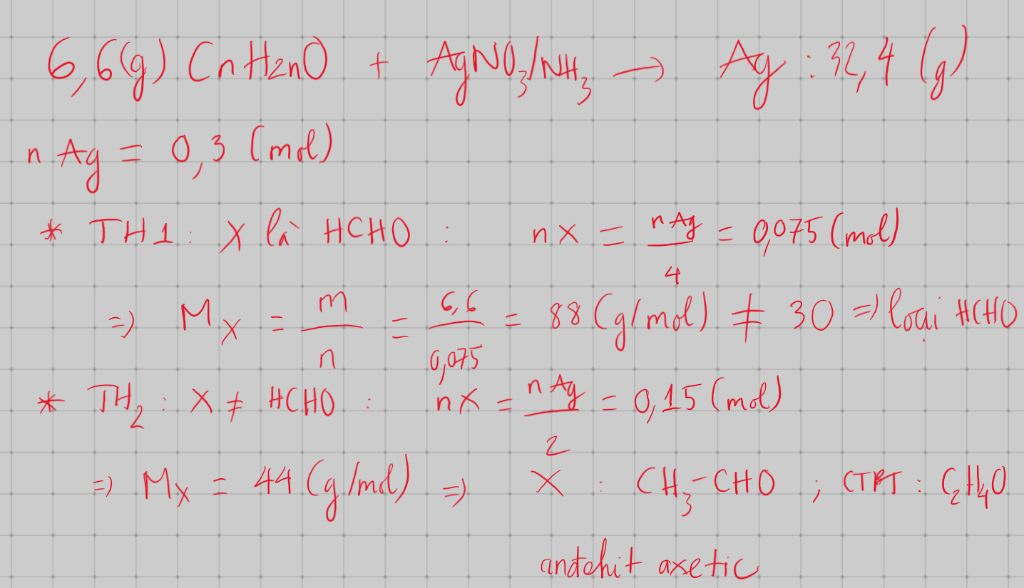 6,6(g) CnH2nO + AgNO3/NH3 → Ag : 32,4 (g)
n Ag = 0,3 (mol)
* TH1: X là HCHO : nX = nAg/4 = 0,075 (mol)
=> MX = m/n = 6,6/0,075 = 88 (g/mol) ≠ 30 => loại HCHO
* TH2: X ≠ HCHO : nX = nAg/2 = 0,15 (mol)
=> MX = 44 (g/mol) => X : CH3-CHO ; CTPT : C2H4O
anđehit axetic